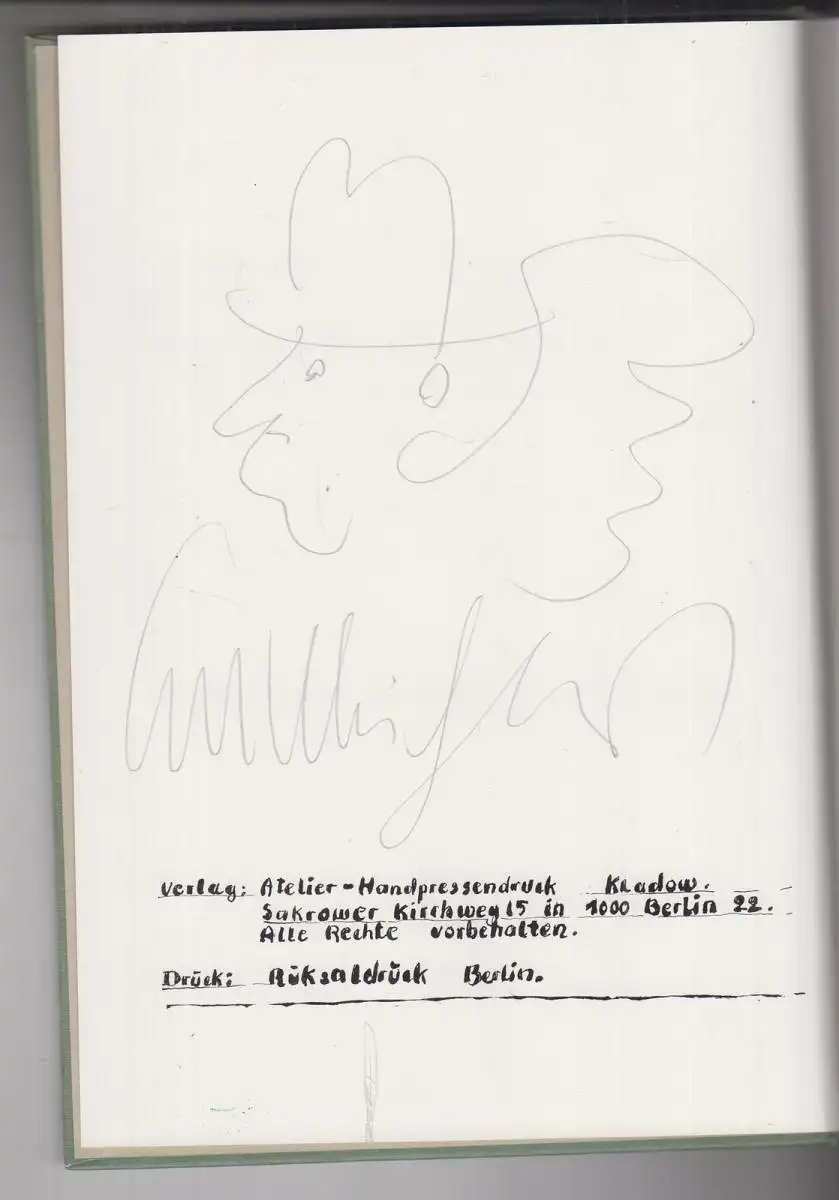 Verlag: Atelier-Handpressendruck Kladow.
Sakrower Kirchweg 15 in 1000 Berlin 22.
Alle Rechte vorbehalten.
Drück: Rüksaldrück Berlin.